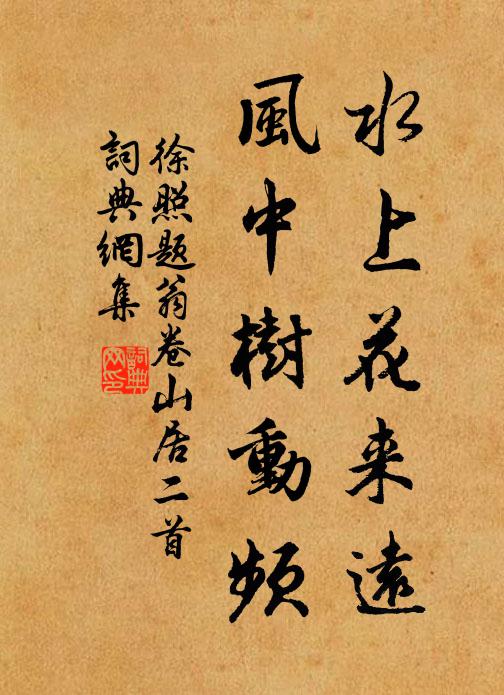 水上花来遠
風中樹動頻
徐照题翁卷山居二首
詞典網集
詞典网印